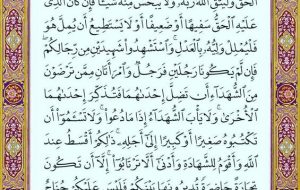 الحق وليتق الله ربه ولا يبخس منه شيئا فإن كان الذي
عليه الحق سفيها أو ضعيفا أو لا يستطيع أن يمل هو
فليملل وليه بالعدل واستشهدوا شهيدين من رجالكم
فإن لم يكونا رجلين فرجل وامرأتان ممن ترضون
من الشهداء أن تضل إحداهما فتذكر إحداهما
الأخرى ولا يأب الشهداء إذا ما دعوا ولا تسئموا أن
تكتبوه صغيرا أو كبيرا إلى أجله ذلكم أقسط عند
الله وأقوم للشهادة وأدنى ألا ترتابوا إلا أن تكون
تجارة حاضرة تديرونها بينكم فليس عليكم جناح